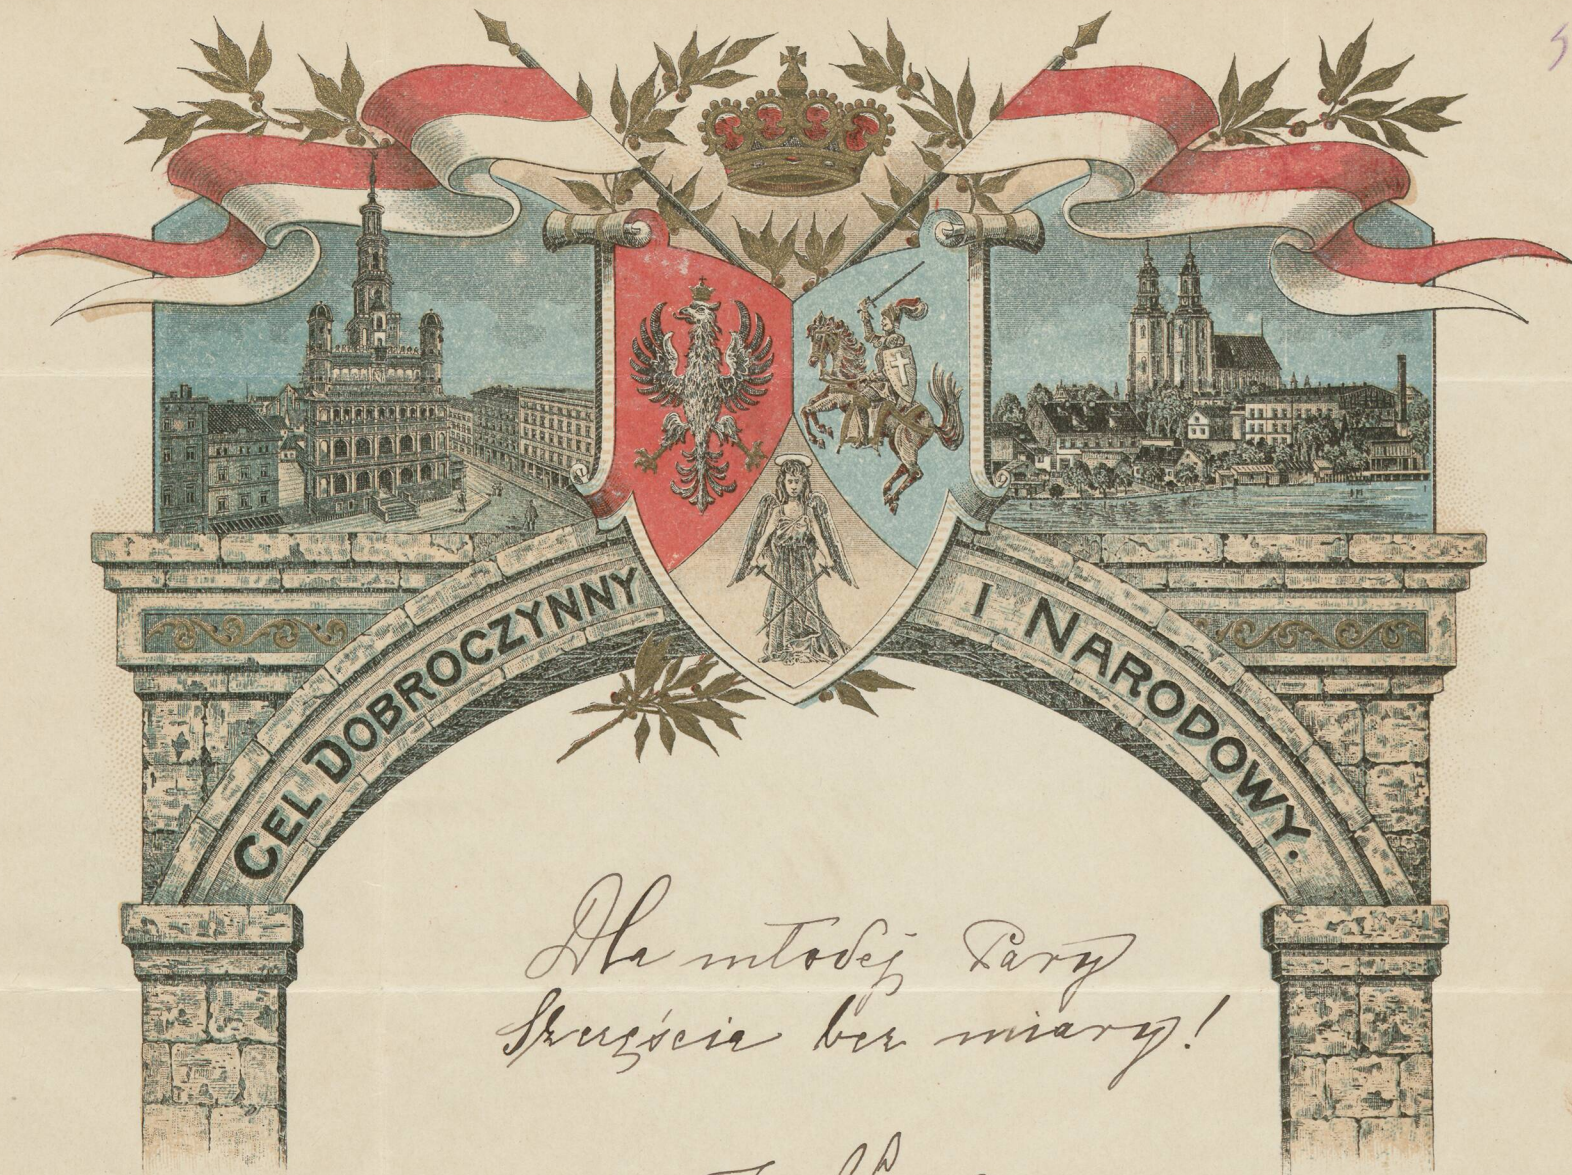 CEL DOBROCZYNNY I NARODOWY.
Dla młodej Pary
Szczęścia bez miary!